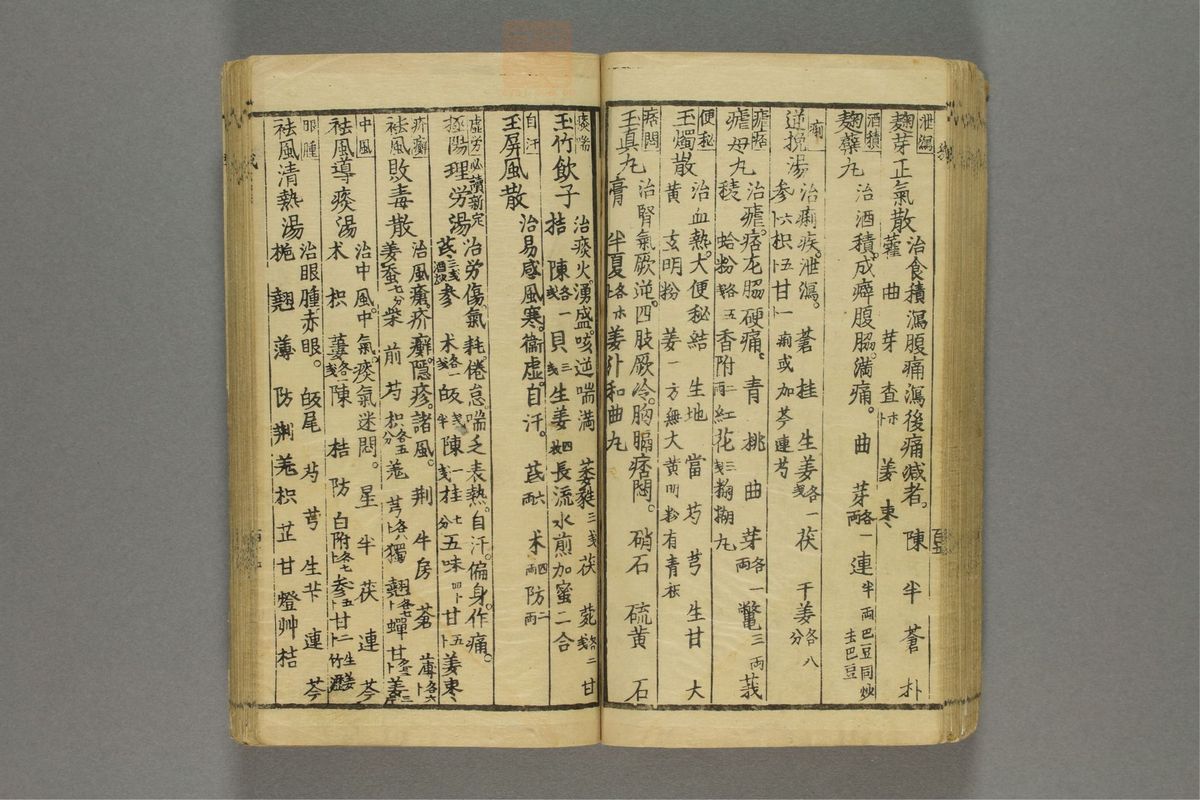 泄瀉
麹芽正氣散
治食積瀉腹痛瀉後痛减者。陳 半 蒼 朴
藿 曲 芽 查 姜 枣
酒積
麹櫱丸
治酒積。成癖腹脇。滿痛。 曲 芽各一兩 連半兩 巴豆同炒去巴豆
痢
逆挽湯
治痢疾。泄瀉。 蒼 桂 生姜各一 茯 干姜各八分
参 枳五 甘 痢或加芩連芍
瘧痞
瘧母丸
治瘧。痞左脇硬痛。 青 桃 曲 芽各一兩 鱉三兩 莪
稜 蛤粉各五 香附二兩 紅花三 糊丸
便秘
玉燭散
治血熱。大便秘結 生地 當 芍 芎 生甘 大
黄 玄明粉 姜一方無大黄明粉有青
痞悶
玉真丸
治腎氣厥逆。四肢厥冷。胸膈痞悶。 硝石 硫黄 石
膏 半夏各 姜汁和曲丸
痰喘
玉竹飲子
治痰火。湧盛。咳逆喘滿 萎蕤三 茯 菀各二 甘
桔 陳各一 貝三 生姜四 長流水煎加蜜二合
自汗
玉屏風散
治易感風寒。衛虛。自汗。 芪六兩 术四兩 防二兩
虛労必讀新定
拯陽理労湯
治労傷。氣耗。倦怠喘乏表熱。自汗。偏身。作痛。
芪三 酒炒 参 术各一 皈半 陳一 桂七分 五味四 甘五 姜枣
疥癬
袪風敗毒散
治風瘡。疥癬。隱疹。諸風。 荆 牛房 蒼 各六
姜蚕七分 柴 前 芍 枳各五分 羌 芎各八 獨 翹各七 蟬 甘 姜
中風
袪風導痰湯
治中風。中氣。痰氣迷悶。 星 半 茯 連 芩
术 枳 蔞各一 陳 桔 防 白附各七 参五 甘二 生姜 竹瀝
眼腫
袪風清熱湯
治眼腫赤眼。 皈尾 芍 芎 生芐 連 芩
梔 翹 薄 防 荆 羌 枳 芷 甘 燈艸 桔